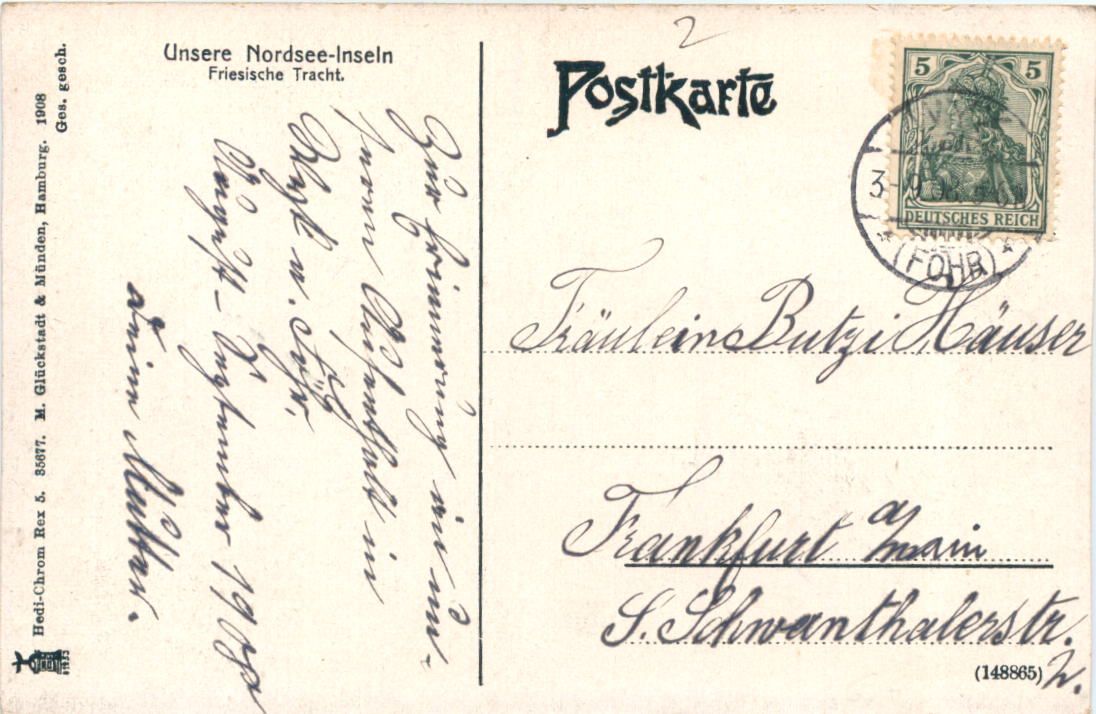 Unsere Nordsee-Inseln
Friesische Tracht.
Zur Erinnerung an un-
seren Aufenthalt in
Wyk a. Föhr,
August – September 1908
Deine Mutter.
Hedi-Chrom Rex 5. 35677. M. Glückstadt & Münden, Hamburg. 1908
Ges. gesch.
2
Postkarte
5 5
DEUTSCHES REICH
3.-9.08.
* (FÖHR) *
Fräulein Butzi Häuser
Frankfurt a/Main
S. Schwanthalerstr.
(148865)